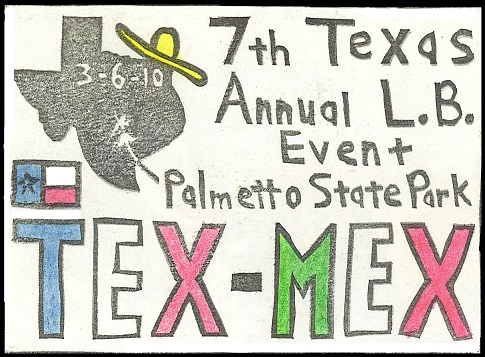 3-6-10
7th Texas
Annual L.B.
Event
Palmetto State Park
TEX-MEX